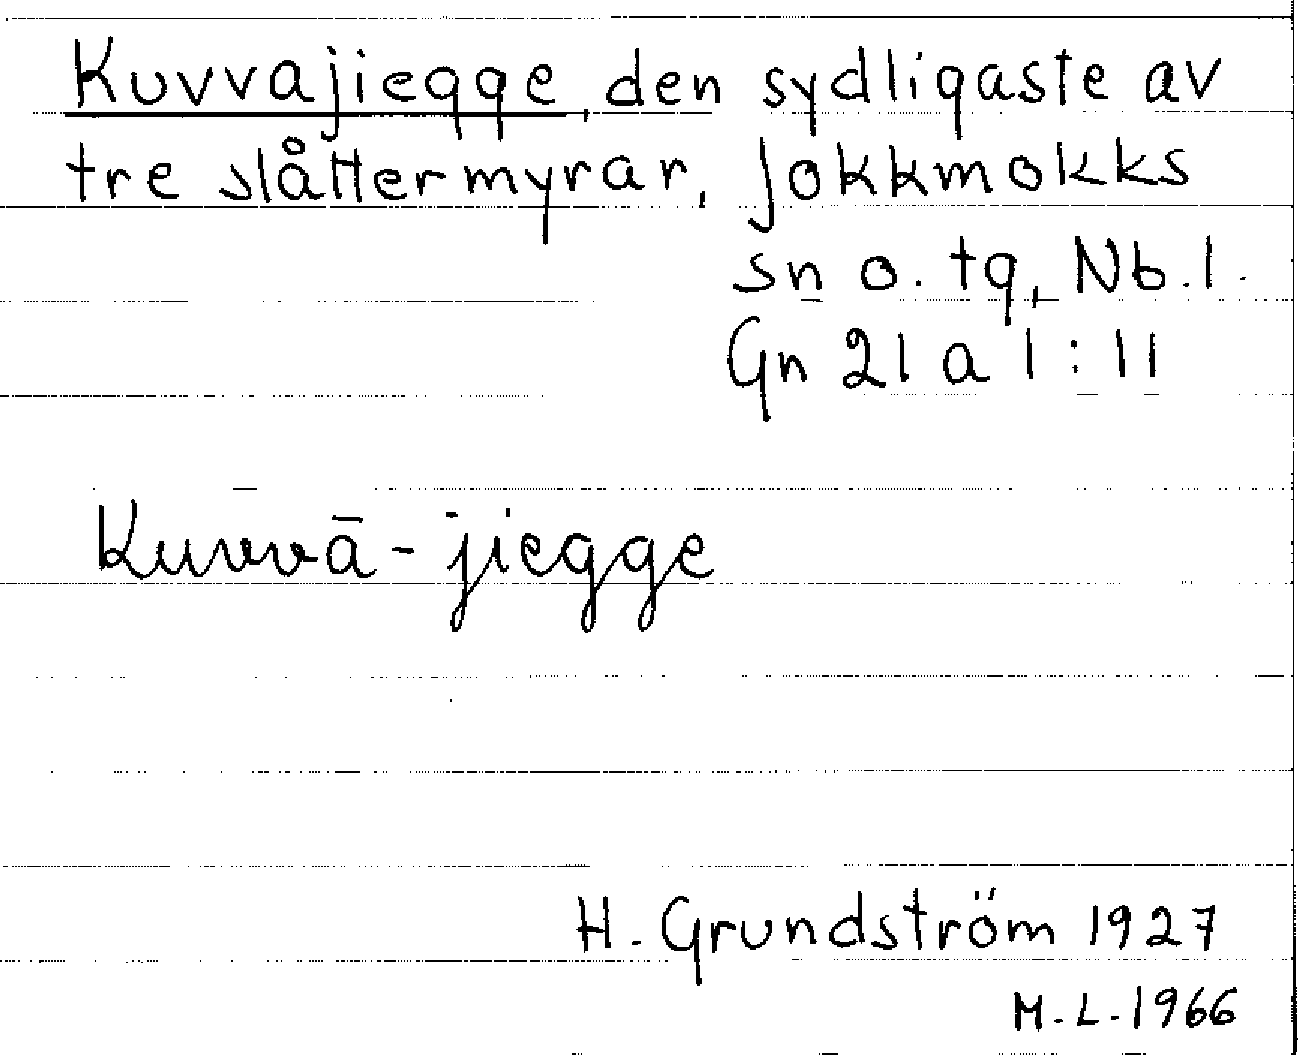 Kuvvajiegge, den sydligaste av
tre slåttermyrar, Jokkmokks
sn o. tg, Nb. l.
Gn 21 a 1:11
Kuvvā-jiegge
H. Grundström 1927
M.L. 1966